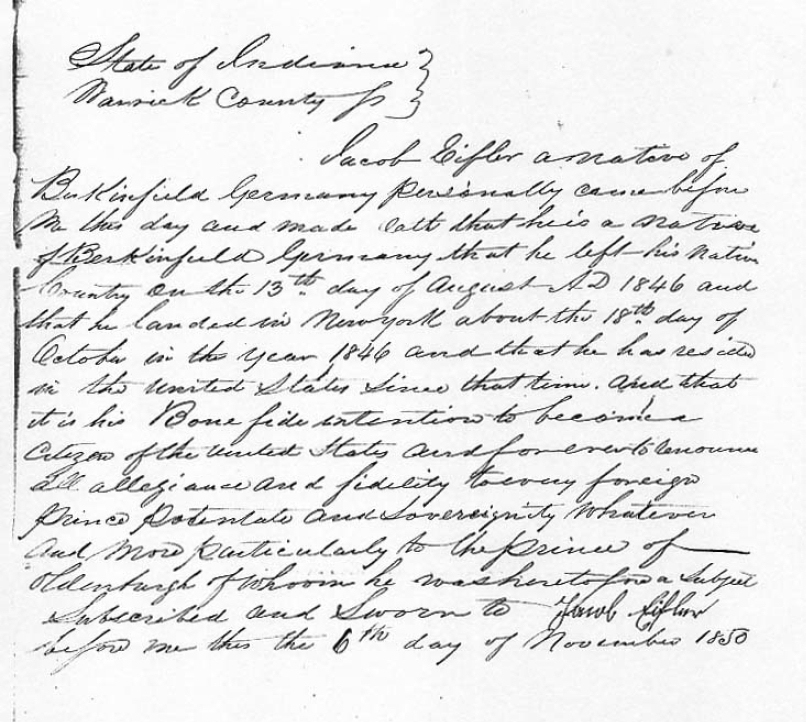 State of Indiana }
Warrick County Ss }
Jacob Eifler a native of
Berkinfield Germany personally came before
me this day and made oath that he is a native
of Berkinfield Germany that he left his native
Country on the 13th day of August AD 1846 and
that he landed in New York about the 18th day of
October in the year 1846 and that he has resided
in the United States since that time. And that
it is his Bone fide intention to become a
Citizen of the United States and forever to renounce
all allegiance and fidelity to every foreign
Prince Potentate and Sovereignity whatever
and more particularly to the Prince of
Oldenburgh of whoom he was heretofore a Subject
Subscribed and Sworn to Jacob Eifler
before me this the 6th day of November 1850